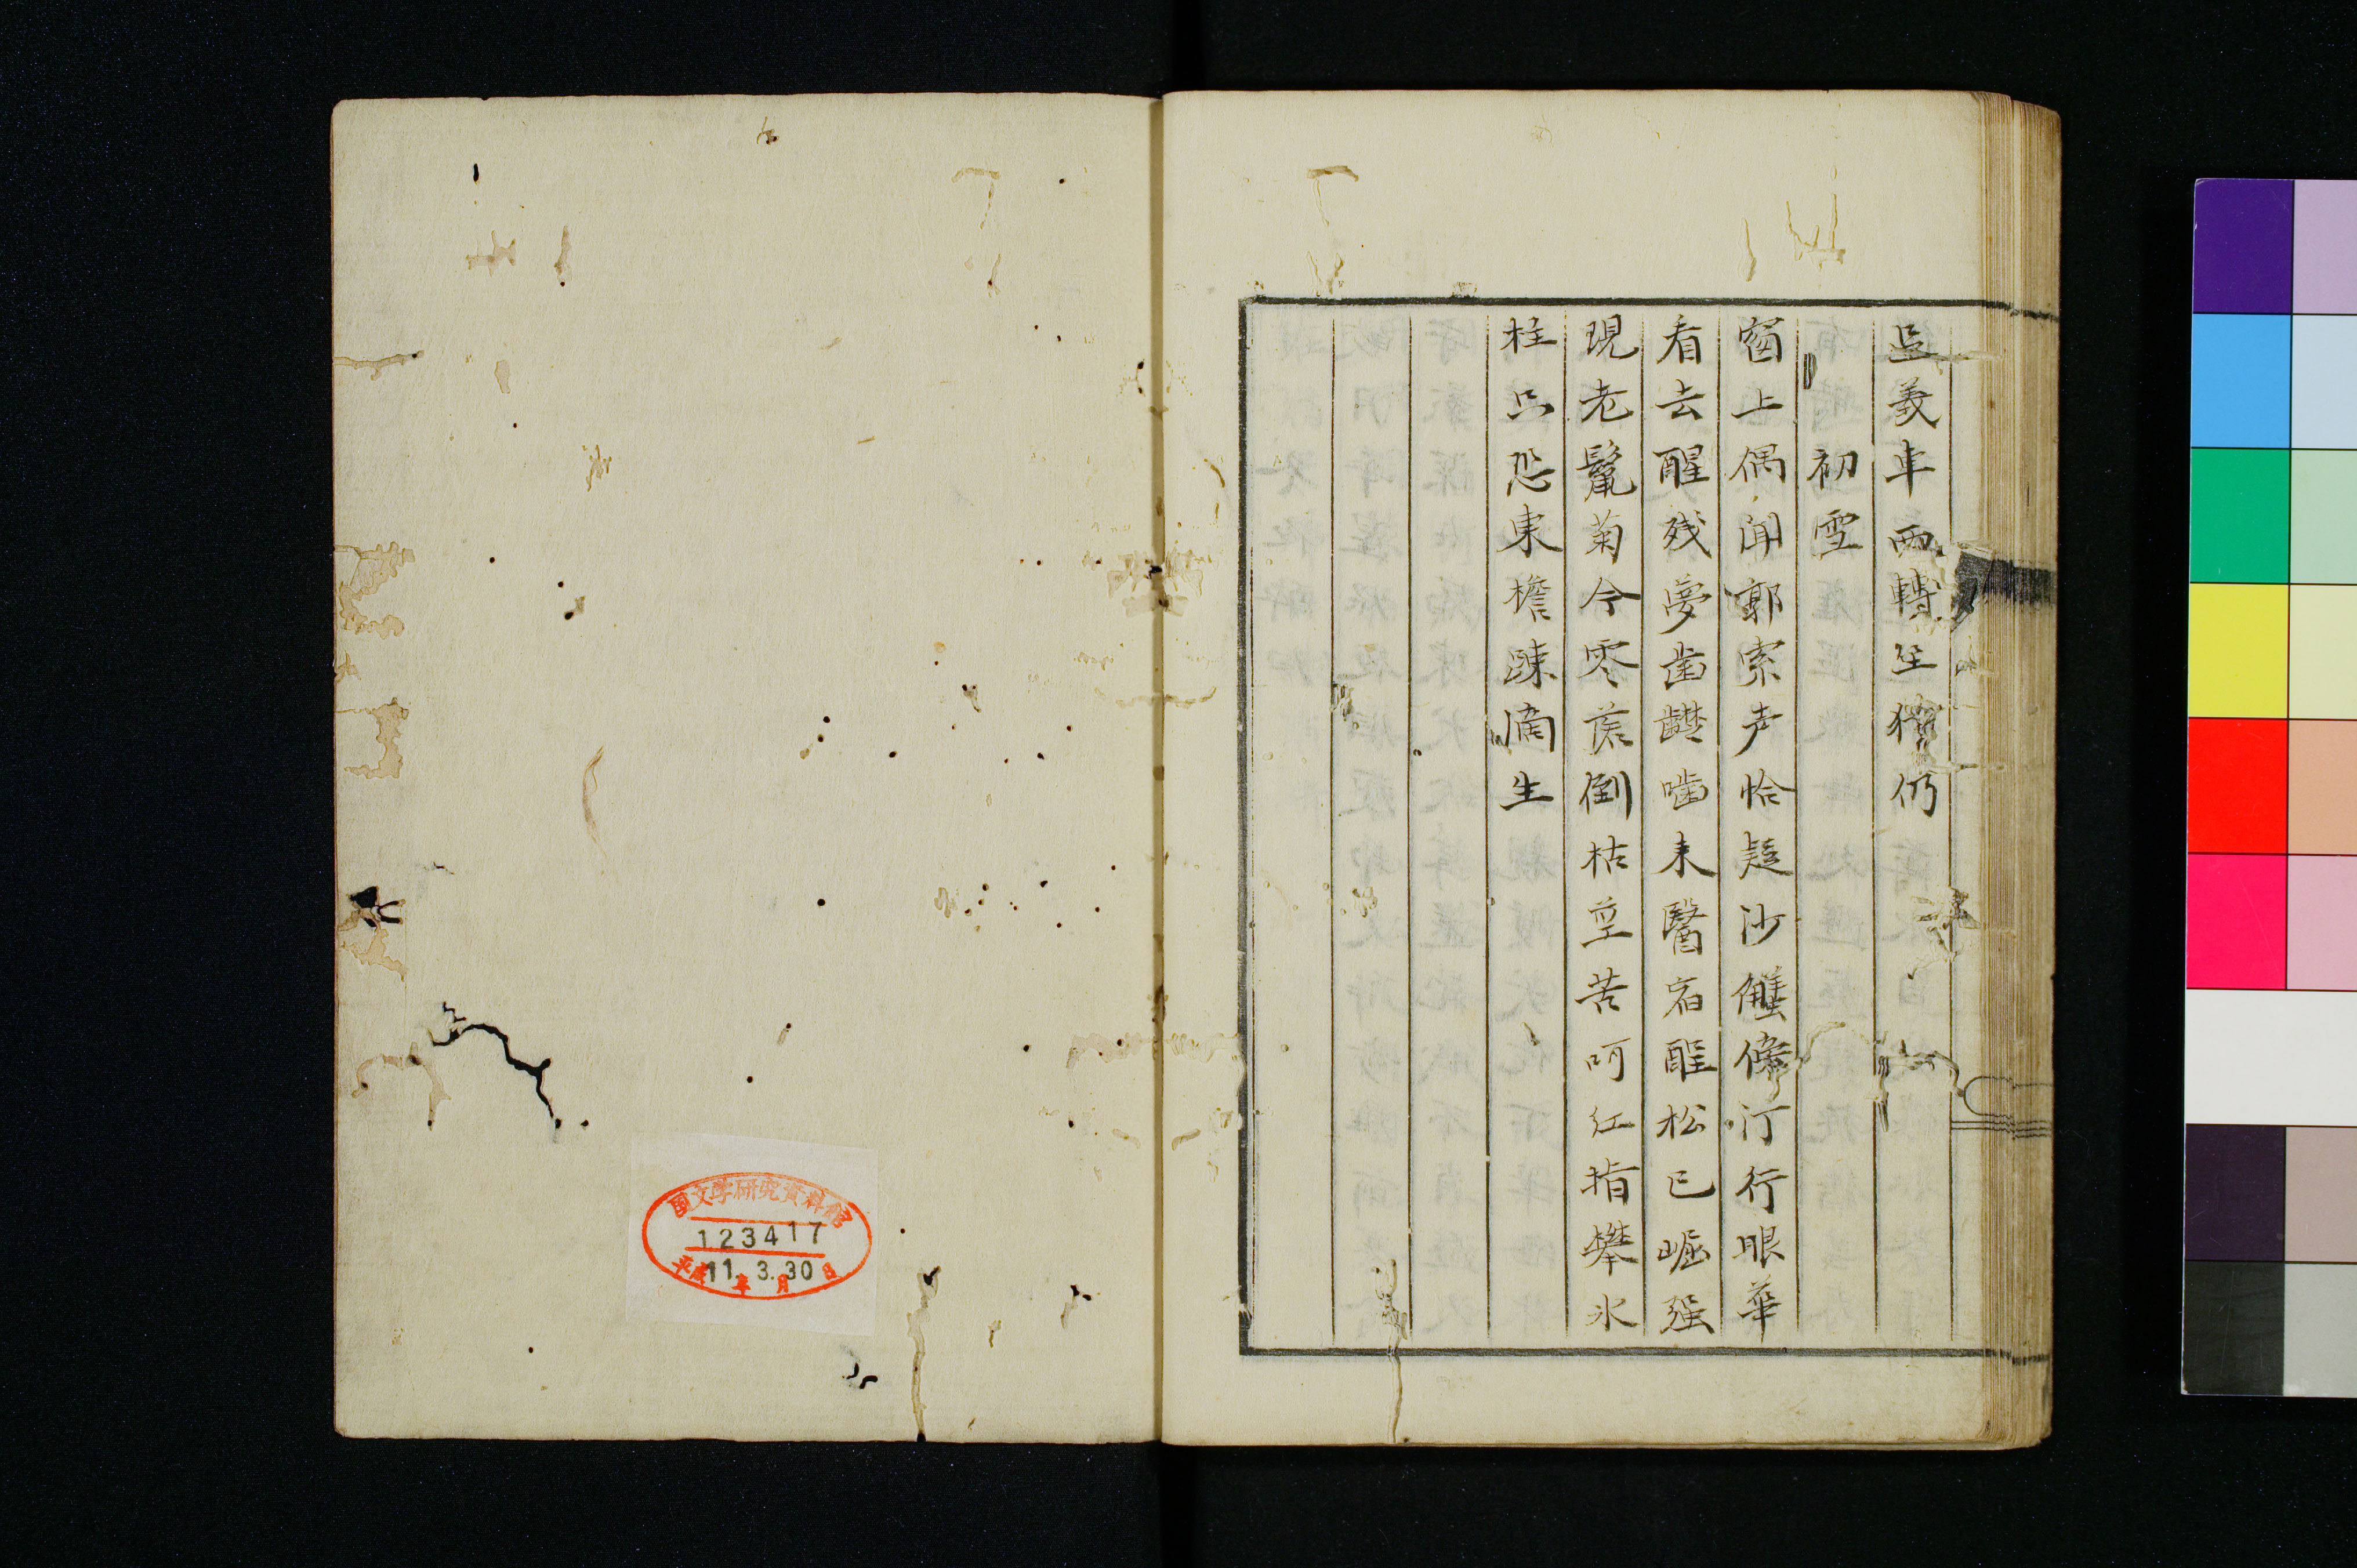 追義車西轉坐猶仍
初雪
窗上偶聞郭索声恰疑沙蟹傍汀行眼華
看去醒残夢歯齼嚙来醫宿酲松已崛强
現老鬣菊今零落倒枯莖苦呵红指攀氷
柱只恐東檐踈滴生
國文學研究資料館
123417
平成11年3月30日